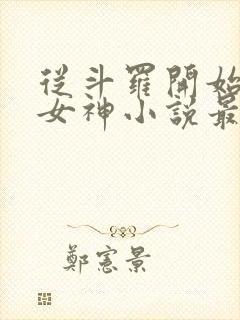 從斗羅開始
女神小說最
鄭憲景